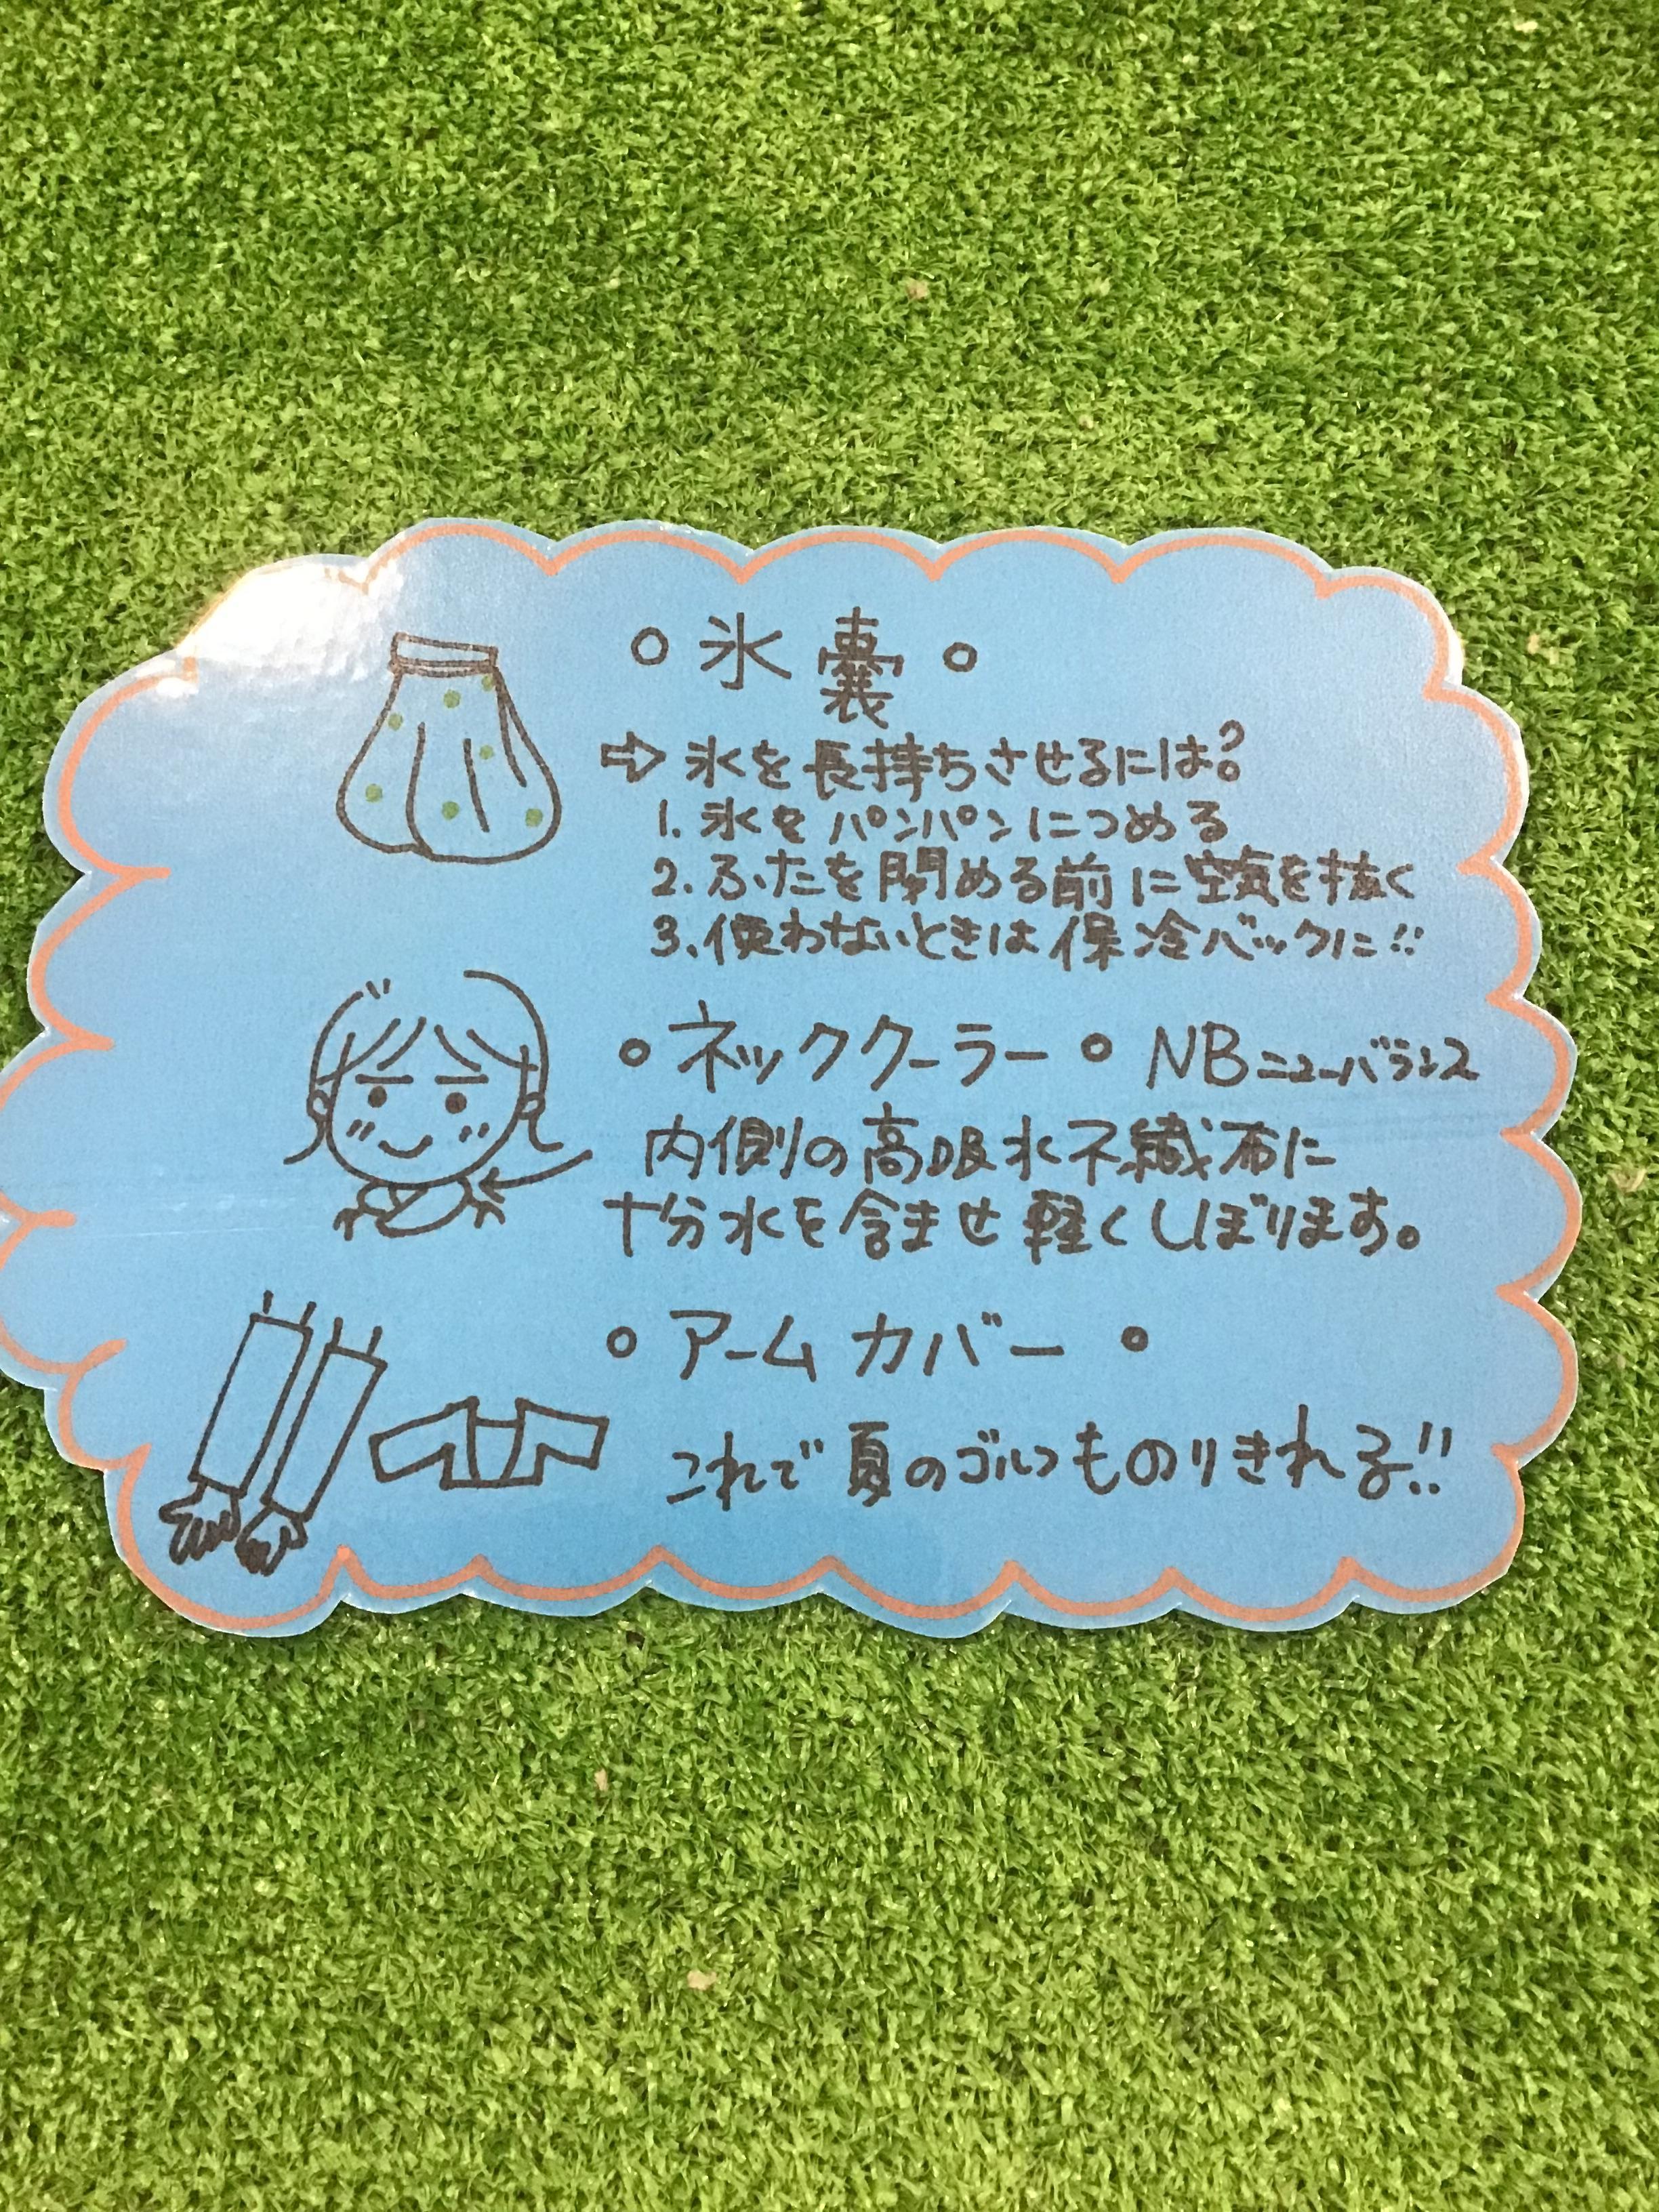 ○氷嚢○
⇨氷を長持ちさせるには?
1.氷をパンパンにつめる
2.ふたを閉める前に空気を抜く
3.使わないときは保冷バックに!!
○ネッククーラー○ NBニューバランス
内側の高吸水不織布に
十分水を含ませ軽くしぼります。
○アームカバー○
これで夏のゴルフものりきれる!!